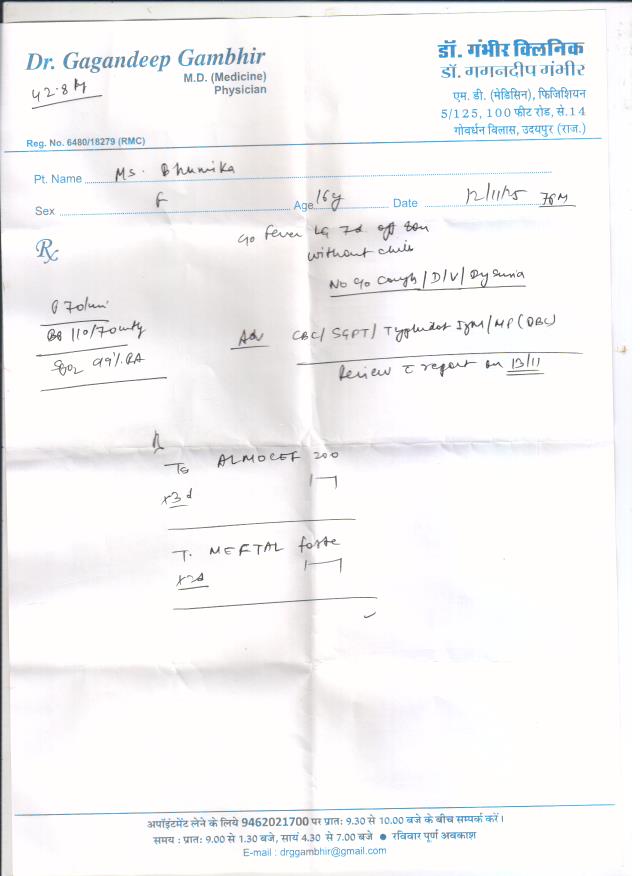 Dr. Gagandeep Gambhir
M.D. (Medicine)
Physician
Reg. No. 6480/18279 (RMC)
डॉ. गंभीर क्लिनिक
डॉ. गगनदीप गंभीर
एम. डी. (मेडिसिन), फिजिशियन
5/125, 100 फीट रोड, से.14
गोवर्धन विलास, उदयपुर (राज.)
Pt. Name Ms. Bhumika
Sex F Age 16y Date 12/11/25
c/o Fever
without chills
No c/o Cough / D/V / Dysuria
110/70
SpO2 99% RA
Adv CBC/ SGPT/ Typhidot IgM/ MP (QBC)
Review c report on 13/11
Rx
ALMOCEF 200
x3d
T. MEFTAL forte
अपॉइंटमेंट लेने के लिये 9462021700 पर प्रातः 9.30 से 10.00 बजे के बीच सम्पर्क करें।
समय : प्रातः 9.00 से 1.30 बजे, सायं 4.30 से 7.00 बजे ● रविवार पूर्ण अवकाश
E-mail : drggambhir@gmail.com